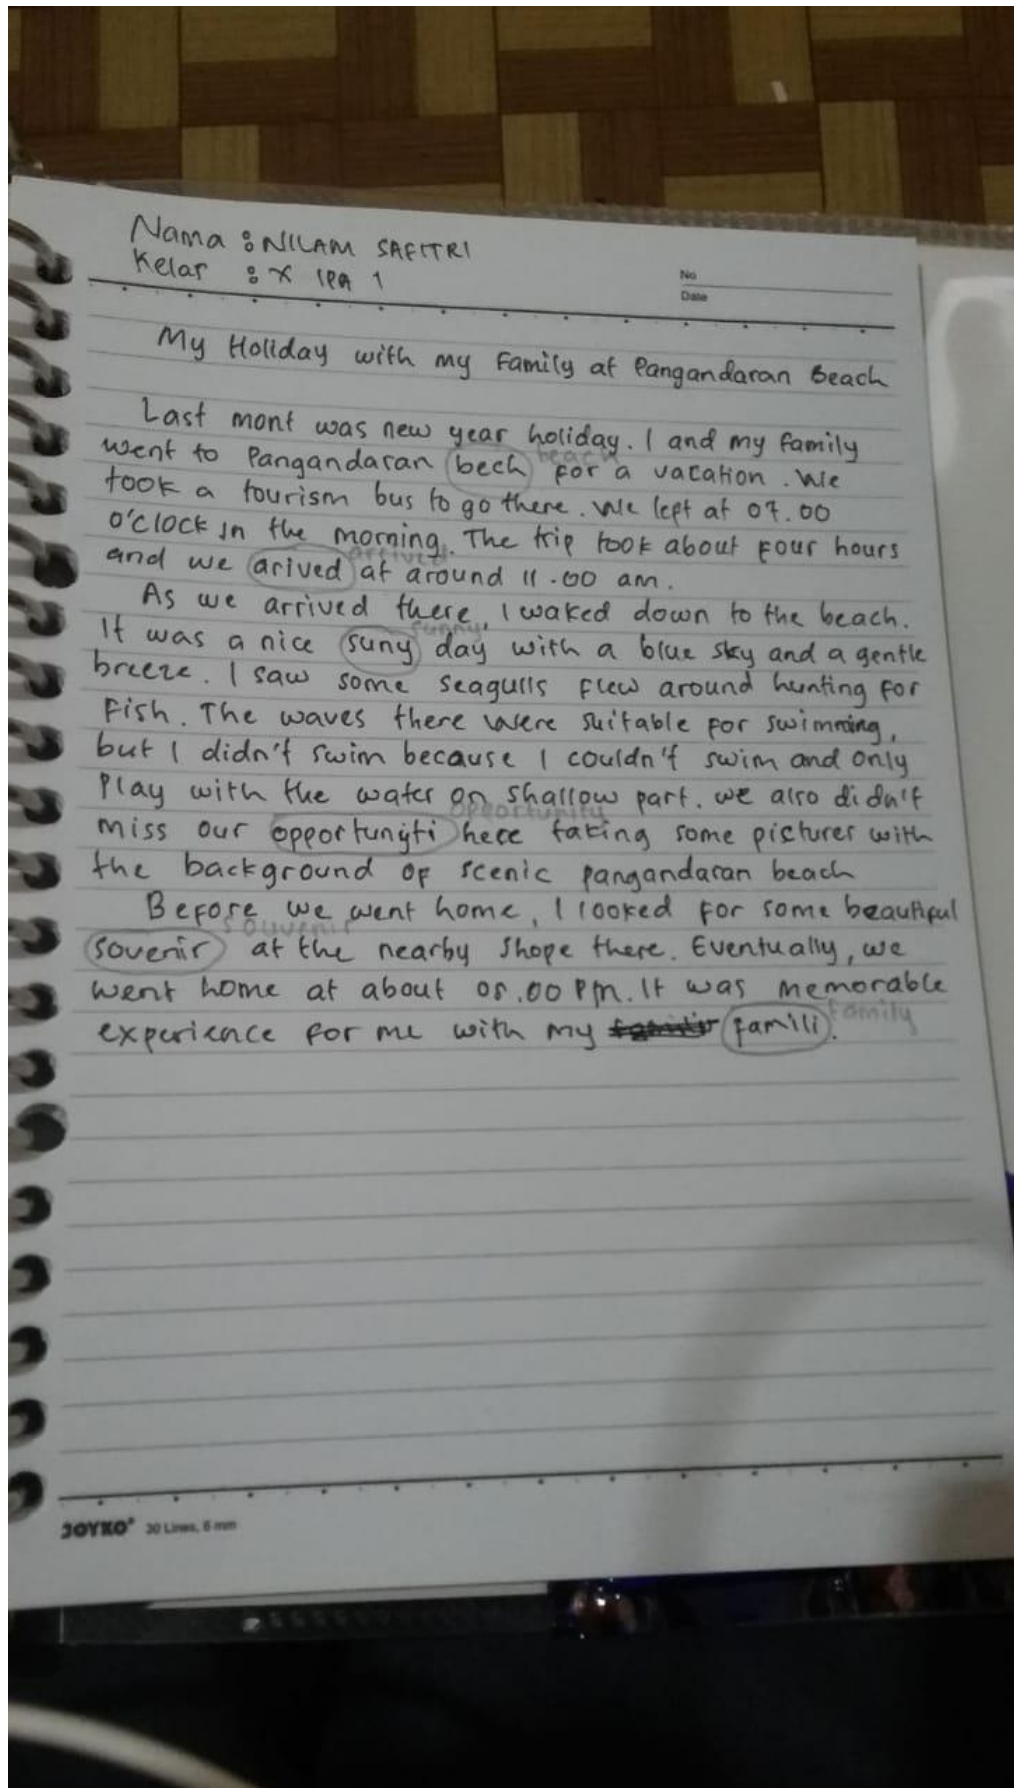 Nama : NILAM SAFITRI
Kelas : X IPA 1
No
Date
My Holiday with my Family at Pangandaran Beach
Last mont was new year holiday. I and my family
beach
went to Pangandaran bech for a vacation. We
took a tourism bus to go there. We left at 07.00
o'clock in the morning. The trip took about four hours
arrived
and we arived at around 11.00 am.
As we arrived there, I waked down to the beach.
sunny
It was a nice suny day with a blue sky and a gentle
breeze. I saw some seagulls flew around hunting for
Fish. The waves there were suitable for swimming,
but I didn't swim because I couldn't swim and only
Play with the water on shallow part. we also didn't
opportunity
miss our opportunyti here taking some pictures with
the background of scenic pangandaran beach
Before we went home, I looked for some beautiful
souvenir
sovenir at the nearby shope there. Eventually, we
went home at about 05.00 Pm. It was memorable
family
experience for me with my famili.
JOYKO 30 Lines, 6 mm